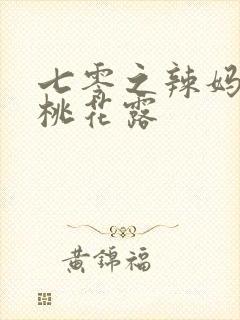 七零之辣妈
桃花露
黄錦福